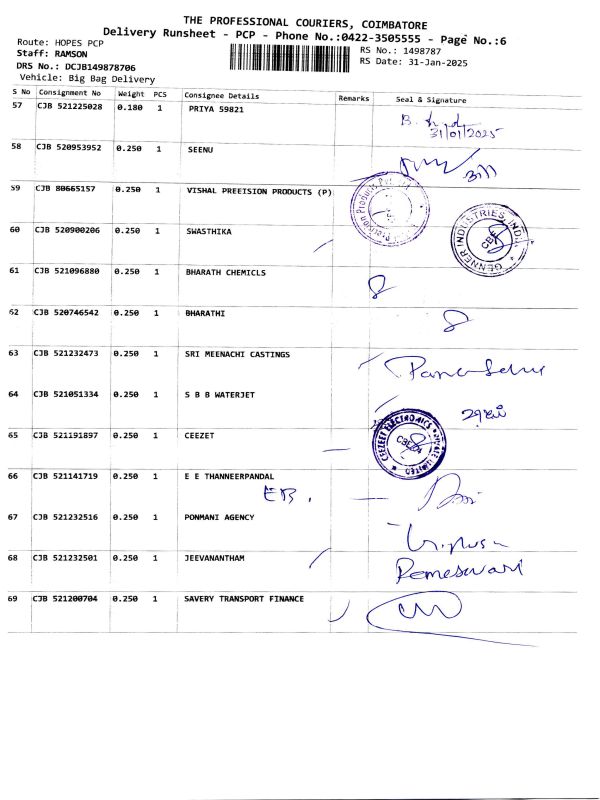 THE PROFESSIONAL COURIERS, COIMBATORE
Delivery Runsheet - PCP - Phone No.:0422-3505555 - Page No.:6
Route: HOPES PCP
RS No.: 1498787
Staff: RAMSON
RS Date: 31-Jan-2025
DRS No.: DCJB149878706
Vehicle: Big Bag Delivery
S No Consignment No Weight PCS Consignee Details Remarks Seal & Signature
57 CJB 521225028 0.180 1 PRIYA 59821
31/01/2025
58 CJB 520953952 0.250 1 SEENU
59 CJB 80665157 0.250 1 VISHAL PREEISION PRODUCTS (P)
60 CJB 520900206 0.250 1 SWASTHIKA
INDUSTRIES
CBE
61 CJB 521096880 0.250 1 BHARATH CHEMICLS
62 CJB 520746542 0.250 1 BHARATHI
63 CJB 521232473 0.250 1 SRI MEENACHI CASTINGS
64 CJB 521051334 0.250 1 S B B WATERJET
65 CJB 521191897 0.250 1 CEEZET
CEEZEET ELECTRONICS PRIVATE LIMITED
66 CJB 521141719 0.250 1 E E THANNEERPANDAL
EB.
67 CJB 521232516 0.250 1 PONMANI AGENCY
68 CJB 521232501 0.250 1 JEEVANANTHAM
Remeswari
69 CJB 521200704 0.250 1 SAVERY TRANSPORT FINANCE